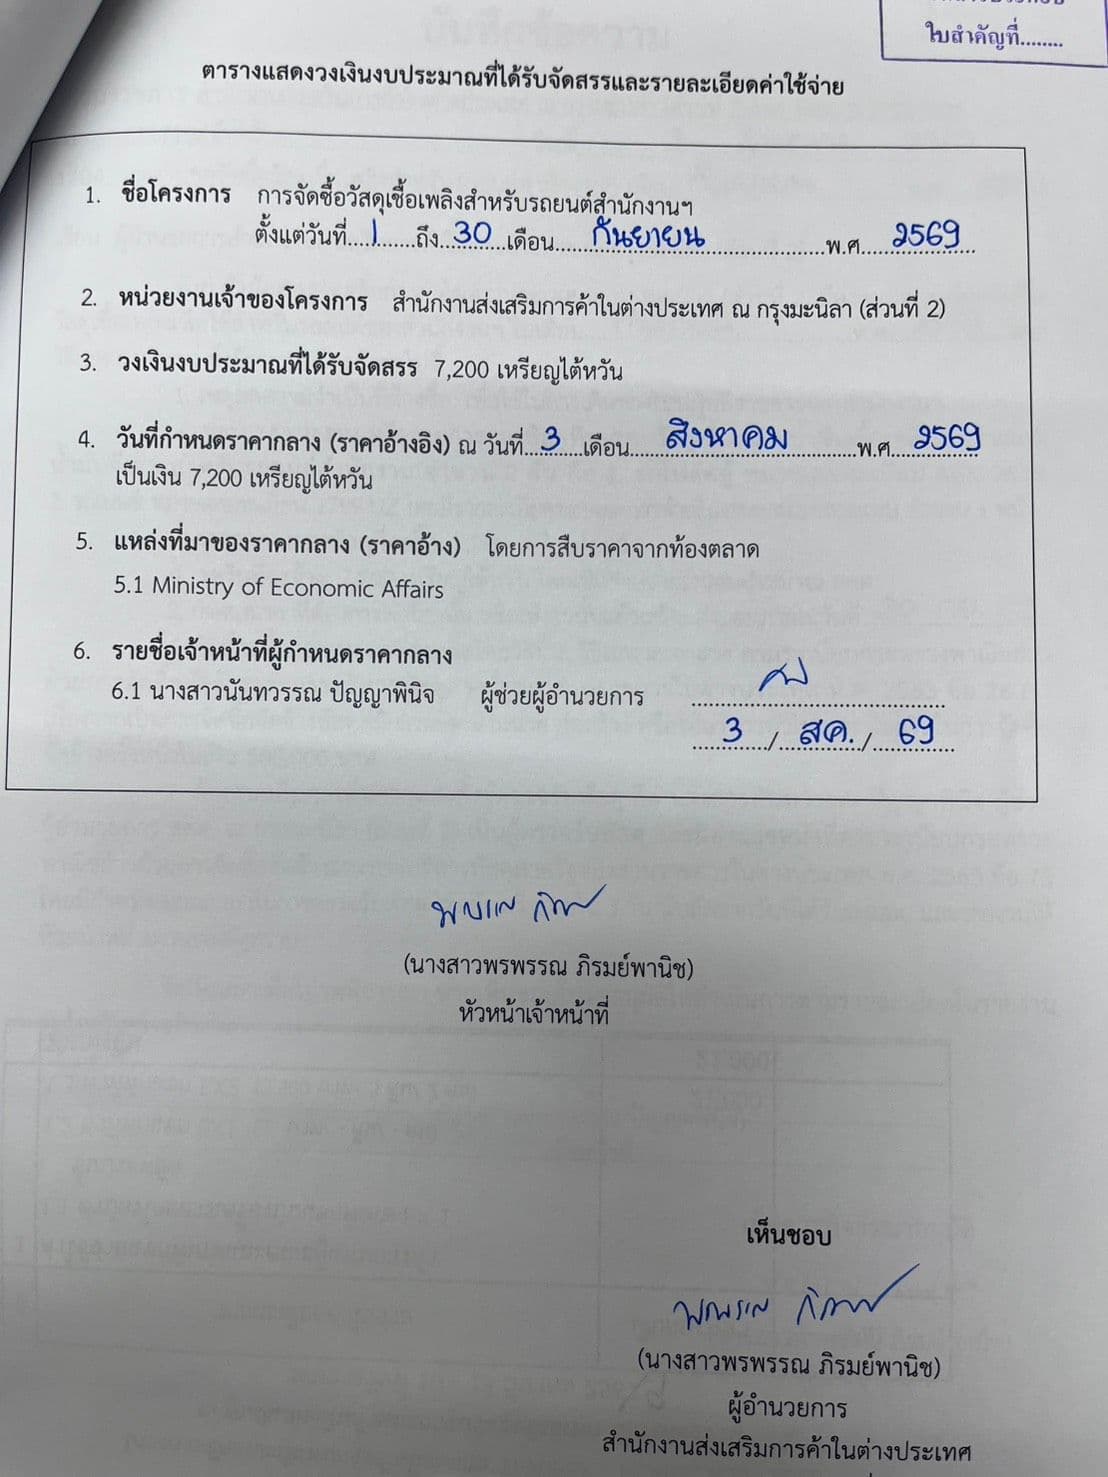 ใบสำคัญที่........
ตารางแสดงวงเงินงบประมาณที่ได้รับจัดสรรและรายละเอียดค่าใช้จ่าย
1. ชื่อโครงการ การจัดซื้อวัสดุเชื้อเพลิงสำหรับรถยนต์สำนักงานฯ
ตั้งแต่วันที่....1......ถึง..30..เดือน......กันยายน..............พ.ศ.....2569...
2. หน่วยงานเจ้าของโครงการ สำนักงานส่งเสริมการค้าในต่างประเทศ ณ กรุงมะนิลา (ส่วนที่ 2)
3. วงเงินงบประมาณที่ได้รับจัดสรร 7,200 เหรียญไต้หวัน
4. วันที่กำหนดราคากลาง (ราคาอ้างอิง) ณ วันที่...3....เดือน......สิงหาคม...........พ.ศ....2569
เป็นเงิน 7,200 เหรียญไต้หวัน
5. แหล่งที่มาของราคากลาง (ราคาอ้าง) โดยการสืบราคาจากท้องตลาด
5.1 Ministry of Economic Affairs
6. รายชื่อเจ้าหน้าที่ผู้กำหนดราคากลาง
6.1 นางสาวนันทวรรณ ปัญญาพินิจ ผู้ช่วยผู้อำนวยการ
3 / สค. / 69
(นางสาวพรพรรณ ภิรมย์พานิช)
หัวหน้าเจ้าหน้าที่
เห็นชอบ
(นางสาวพรพรรณ ภิรมย์พานิช)
ผู้อำนวยการ
สำนักงานส่งเสริมการค้าในต่างประเทศ